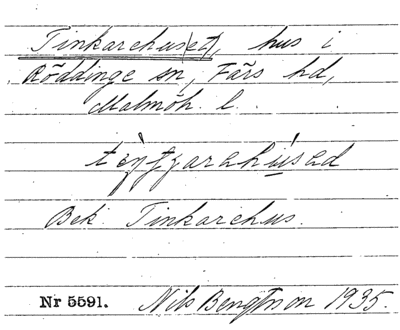 Tinkarehus(et), hus i
Röddinge sn, Färs hd,
Malmöh. l.
Bek. Tinkarehus.
Nr 5591. Nils Bengtson 1935.